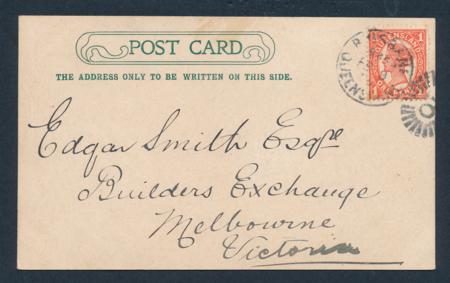 POST CARD
THE ADDRESS ONLY TO BE WRITTEN ON THIS SIDE.
Edgar Smith Esqre
Builders Exchange
Melbourne
Victoria